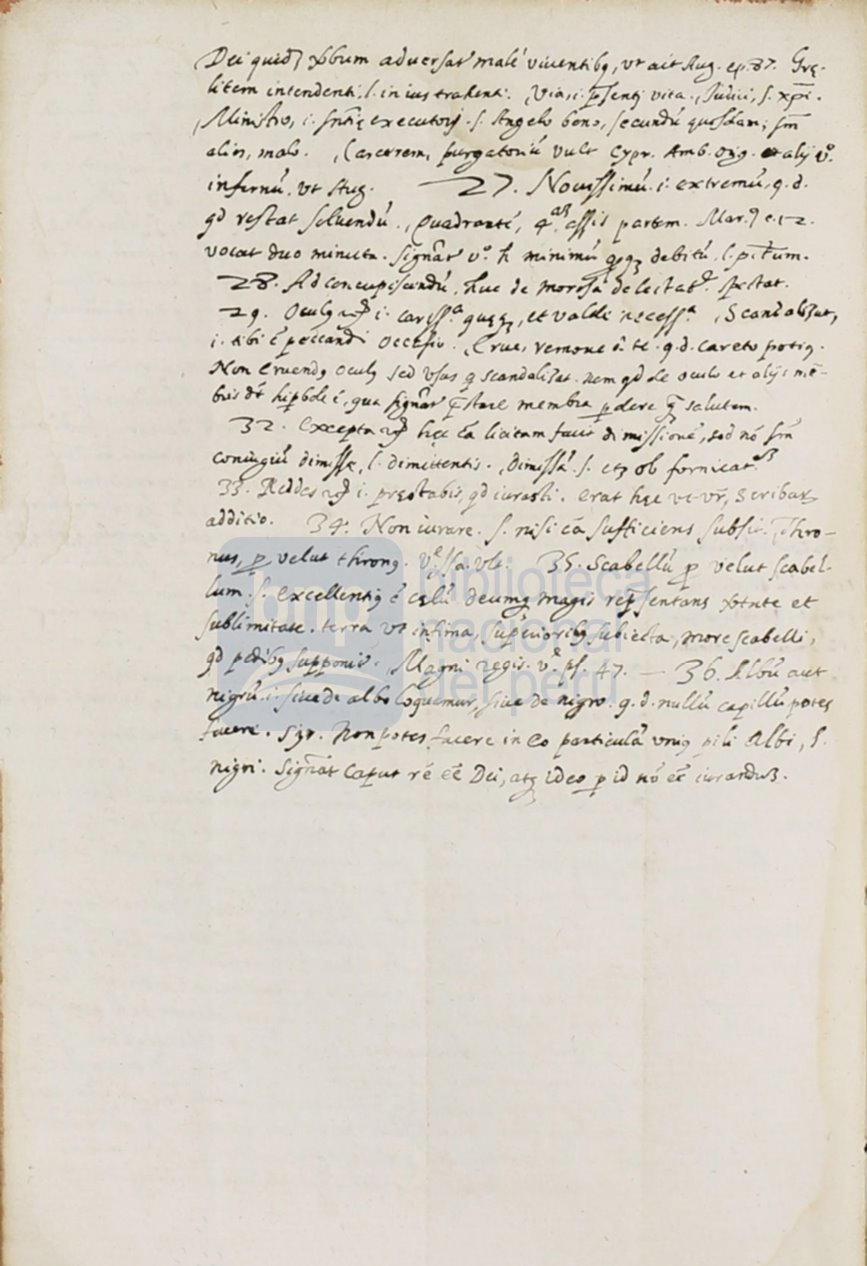 Dei quidē vbum adversat' malè viventibꝫ, vt ait Aug. ep. 87. Gr̨ę.
litem intendenti, l. in ius trahenti. Via, i. p̄senti vita. Judici, s. xp̄i.
Ministro, i. sn̄tię executori. s. Angelo bono, secundū quosdam; sm̄
alios, malo. Carcerem, purgatoriū vult Cypr. Amb. Orig. et alij vº.
infernū, vt Aug. 27. Novissimū. i. extremū, q. d.
qd restat solvendū. Quadrantē, 4. assis partem. Mar. c. 12.
vocat duo minuta. Signāt vº. h minimū debitū, l. pctum.
28. Ad concupiscendū, huc de morosa delectat. spectat.
29. Oculꝫ i. cariss.ª et valdè necess.ª Scandalizat,
i. tibi ē peccandi occasio. Erue, remove à te. q. d. careto potiꝫ.
Non eruendꝫ oculꝫ sed vsus q̨ scandalizat. nam qd de oculo et alijs mē-
bris dr̄ hipbole ē, qua signāt p̄stare membra pdere q̄ salutem.
32. Excepta hęc cā licitam facit dimissionē, sed nō sm̄
coniugiū dimissę, l. dimittentis. Dimissā. s. etꝫ ob fornicat.
33. Reddes i. pręstabis, qd iurasti. erat hęc vt vr̄, Scribarꝫ
additio. 34. Non iurare. s. nisi cā sufficiens subsit. Thro-
nus, p velut thronꝫ. 35. Scabellū p velut scabel-
lum. s. Excellentiꝫ ē cęlū deumqꝫ magis rep̄sentans et
sublimitate. terra vt infima, superioribꝫ subiecta, more scabelli,
qd pedibꝫ supponit. Magni regis. v. ps. 47. — 36. Albū aut
nigrū. i. sive de albo loquamur, sive de nigro. q. d. nullū capillū potes
facere. Non potes facere in eo particulā vniꝫ pili albi, l.
nigri. Signāt caput rē eē Dei, atqꝫ ideo p id nō eē iurandum.
biblioteca
nacional
del perú